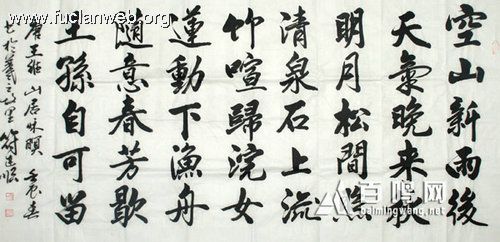 www.fuclanweb.org
空山新雨後
天氣晚来秋
明月松間照
清泉石上流
竹喧歸浣女
蓮動下漁舟
隨意春芳歇
王孫自可留
唐王維山居秋暝 壬辰春
書於羲之故里
百鸣网
baimingwang.net